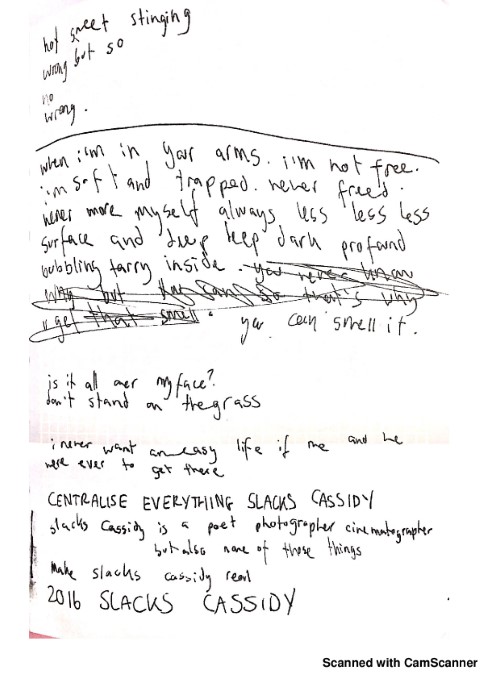 hot sweet stinging
wrong but so
no
wrong.
when i'm in your arms. i'm not free.
i'm soft and trapped. never freed.
never more myself always less less less
surface and deep deep dark profound
bubbling tarry inside. you never know
why but they that's why
u get that smell. you can smell it.
is it all over my face?
don't stand on the grass
i never want an easy life if me and he
were ever to get there
CENTRALISE EVERYTHING SLACKS CASSIDY
slacks cassidy is a poet photographer cinematographer
but also none of those things
make slacks cassidy real
2016 SLACKS CASSIDY
Scanned with CamScanner